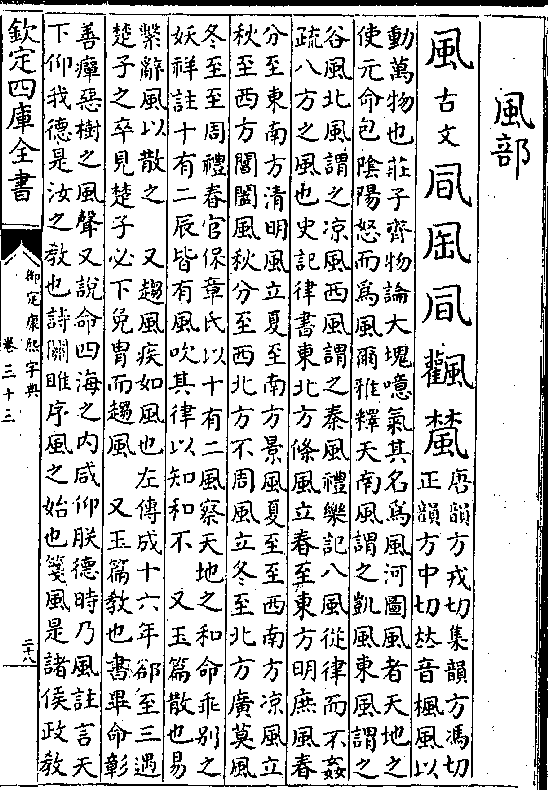 風部
風古文𠙊𠙈凨飌𩙣唐韻方戎切集韻方馮切
正韻方中切𠀤音楓風以
動萬物也莊子齊物論大塊噫氣其名爲風河圖風者天地之
使元命包陰陽怒而爲風爾雅釋天南風謂之凱風東風謂之
谷風北風謂之凉風西風謂之泰風禮樂記八風從律而不姦
疏八方之風也史記律書東北方條風立春至東方明庶風春
分至東南方清明風立夏至南方景風夏至至西南方凉風立
秋至西方閶闔風秋分至西北方不周風立冬至北方廣莫風
冬至至周禮春官保章氏以十有二風察天地之和命乖别之
妖祥註十有二辰皆有風吹其律以知和不 又玉篇散也易
繫辭風以散之 又趨風疾如風也左傳成十六年郤至三遇
楚子之卒見楚子必下免胄而趨風 又玉篇教也書畢命彰
善癉惡樹之風聲又說命四海之内咸仰朕德時乃風註言天
下仰我德是汝之教也詩關雎序風之始也箋風是諸侯政教
欽定四庫全書
御定康熙字典
卷三十三
二十八